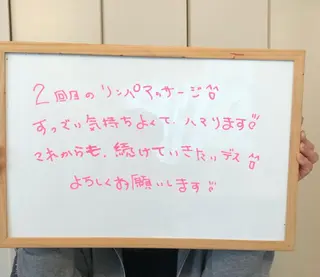 2回目のリンパマッサージ!!
すっごい気持ちよくて、ハマります!!
これからも、続けていきたいデス!!
よろしくお願いします!!